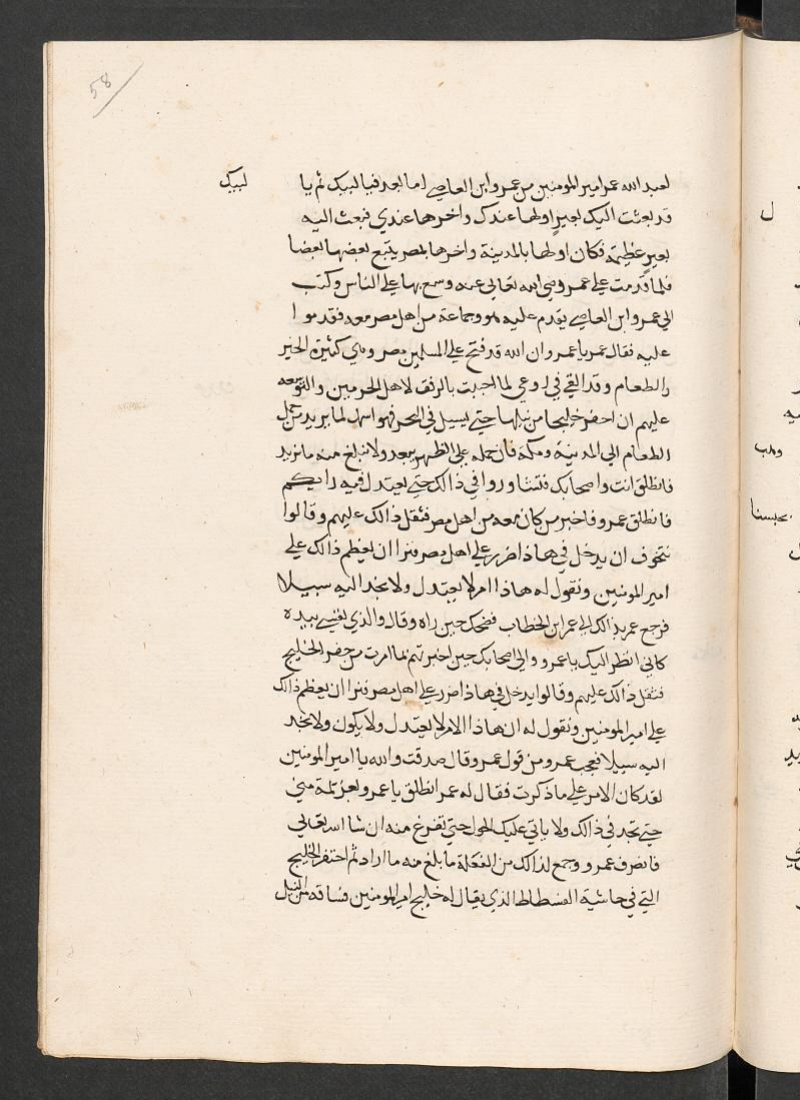 58
لعبد الله عمر امير المومنين من عمرو ابن العاصي اما بعد فيا لبيك ثم يا لبيك
قد بعثت اليك بعير اولها عندك واخرها عندي فبعث اليه
بعير عظيمة فكان اولها بالمدينة واخرها بمصر يتبع بعضها بعضا
فلما قدمت علي عمر رضي الله تعالي عنه وسع بها علي الناس وكتب
الي عمرو ابن العاصي يقدم عليه هو وجماعة من اهل مصر معه فقدموا
عليه فقال عمر يا عمرو ان الله قد فتح علي المسلمين مصر وهي كثيرة الخير
والطعام وقد القي في روعي لما احببت بالرفق لاهل الحرمين والتوسعه
عليهم ان احفر خليجا من نيلها حتي يسيل في البحر فهو اسهل لما يريد من حمل
الطعام الي المدينة ومكة فان حمله علي الظهر يبعد ولا نبلغ منه ما نريد
فانطلق انت واصحابك فتشاوروا في ذالك حتي يعتدل فيه رايكم
فانطلق عمرو فاخبر من كان معه من اهل مصر فثقل ذالك عليهم وقالوا
نتخوف ان يدخل في هاذا ضرر علي اهل مصر فنرا ان يعظم ذالك علي
امير المومنين ونقول له هاذا امر لا يعتدل ولا نجد اليه سبيلا
فرجع عمر بذالك الي عمر ابن الخطاب فضحك حين راه وقال والذي نفسي بيده
كاني انظر اليك يا عمرو والي اصحابك حين اخبرتهم بما امرت من حفر الخليج
فثقل ذالك عليهم وقالوا يدخل في هاذا ضرر علي اهل مصر فنرا ان يعظم ذالك
علي امير المومنين ونقول له ان هاذا الامر لا يعتدل ولا يكون ولا نجد
اليه سبيلا فعجب عمرو من قول عمر وقال صدقت والله يا امير المومنين
لقد كان الامر علي ما ذكرت فقال له عمر انطلق يا عمرو بعزيمة مني
حتي تجد في ذالك ولا ياتي عليك الحول حتي تفرغ منه ان شا الله تعالي
فانصرف عمرو وجمع لذالك من الفعلة ما بلغ منه ما اراد ثم احتفر الخليج
التي في حاشية الفسطاط الذي يقال له خليج امير المومنين فساقه من النيل